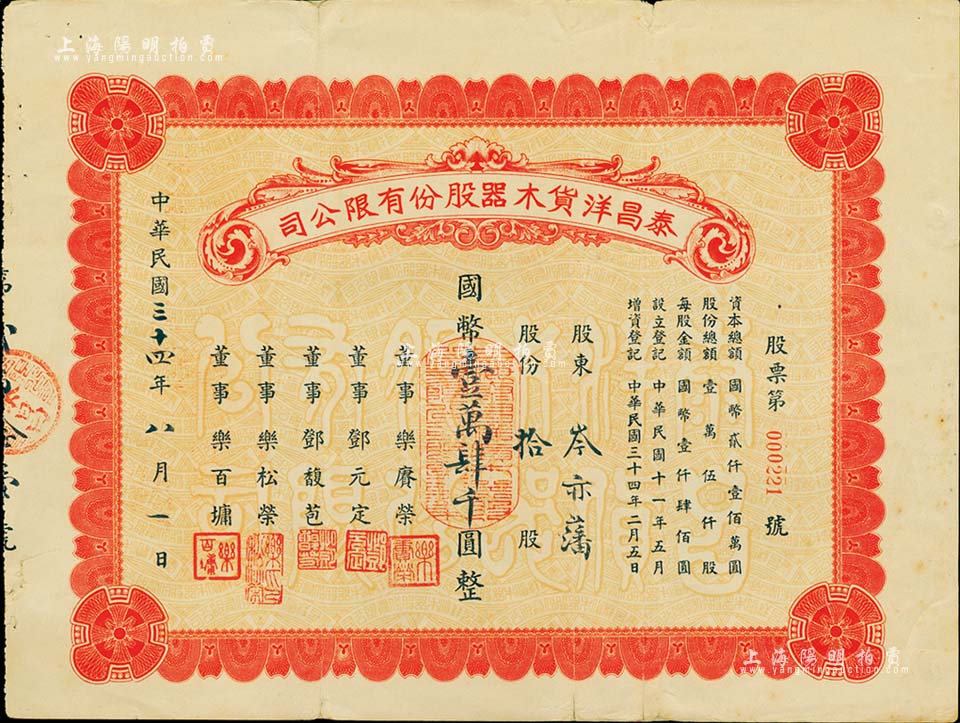 上海陽明拍賣
www.yangmingauction.com
泰昌洋貨木器股份有限公司
股票第 000221 號
資本總額 國幣貳仟壹佰萬圓
股份總額 壹萬伍仟股
每股金額 國幣壹仟肆佰圓
設立登記 中華民國十一年五月
增資登記 中華民國三十四年二月五日
股東 岑亦藩
股份 拾 股
國幣壹萬肆千圓整
董事 樂賡榮
董事 鄧元定
董事 鄧馥苞
董事 樂松榮
董事 樂百墉
中華民國三十四年八月一日
上海陽明拍賣
www.yangmingauction.com